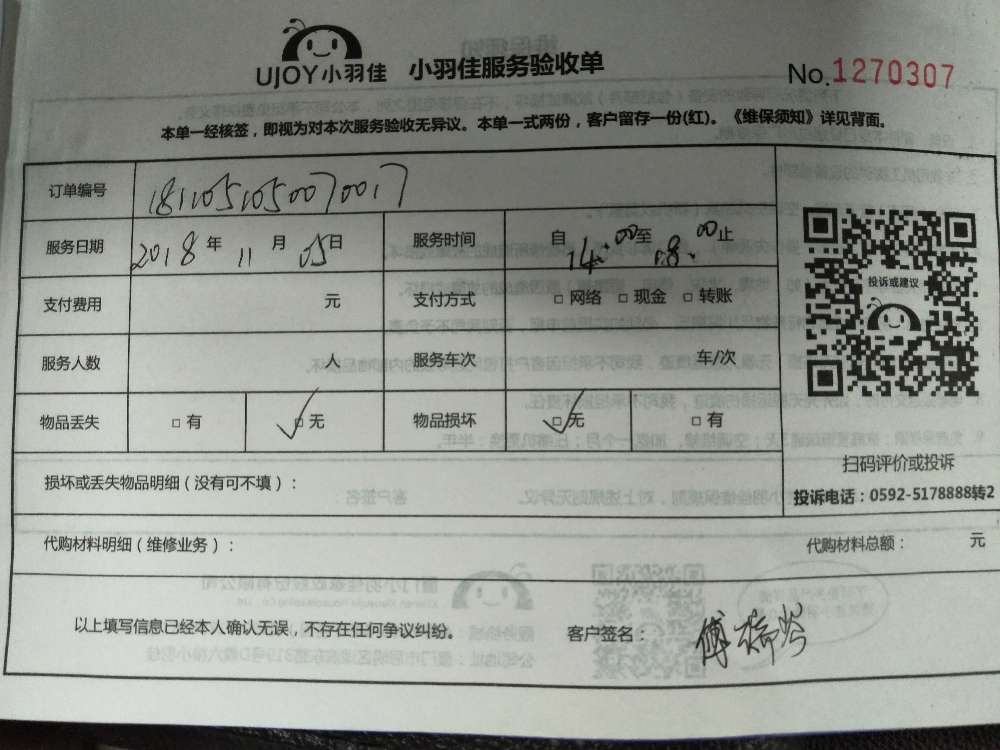 UJOY小羽佳 小羽佳服务验收单 No.1270307
本单一经核签，即视为对本次服务验收无异议。本单一式两份，客户留存一份(红)。《维保须知》详见背面。
订单编号 1811051050070017
服务日期 2018年11月05日 服务时间 自14:00至18:00止
投诉或建议
支付费用 元 支付方式 □网络 □现金 □转账
服务人数 人 服务车次 车/次
物品丢失 □有 ☑无 物品损坏 ☑无 □有
扫码评价或投诉
损坏或丢失物品明细（没有可不填）：
投诉电话：0592-5178888转2
代购材料明细（维修业务）： 代购材料总额： 元
以上填写信息已经本人确认无误，不存在任何争议纠纷。 客户签名：傅瑞岑